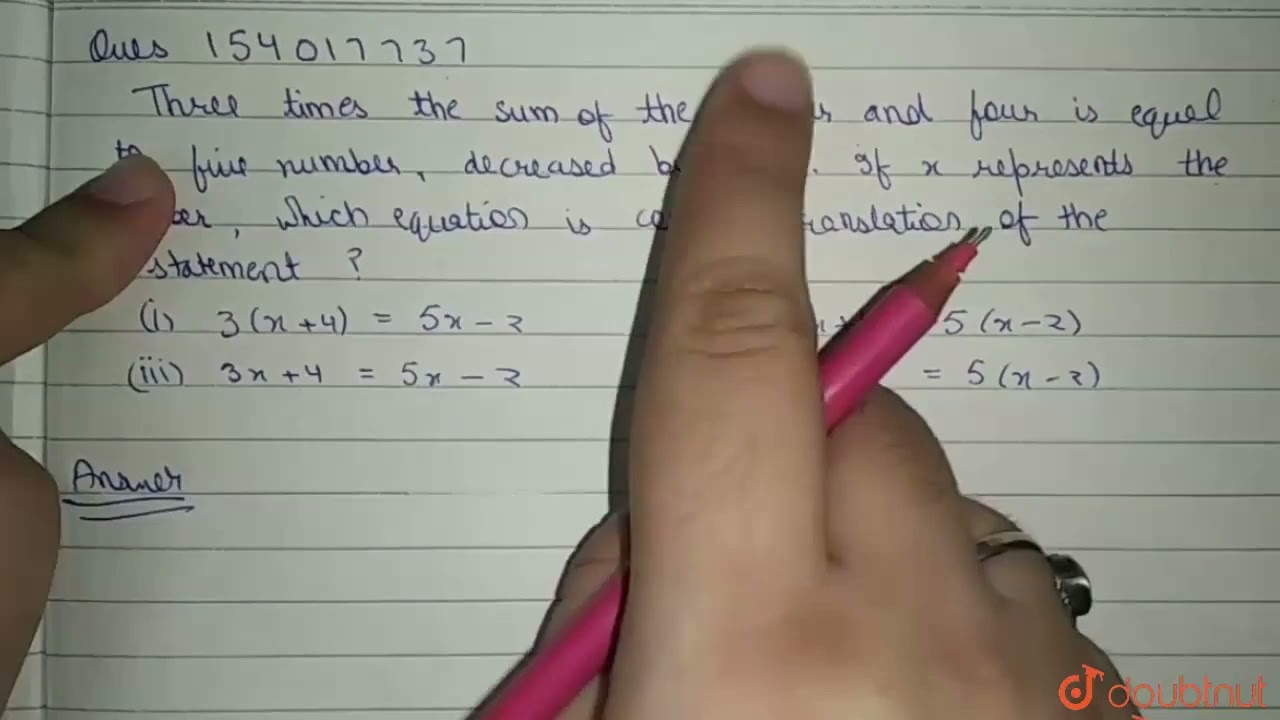 Ques 154017737
Three times the sum of the and four is equal
to five number, decreased If x represents the
, which equation is translation of the
statement ?
(i) 3(x+4) = 5x-2 5(x-2)
(iii) 3x+4 = 5x-2 = 5(x-2)
Answer
doubtnut